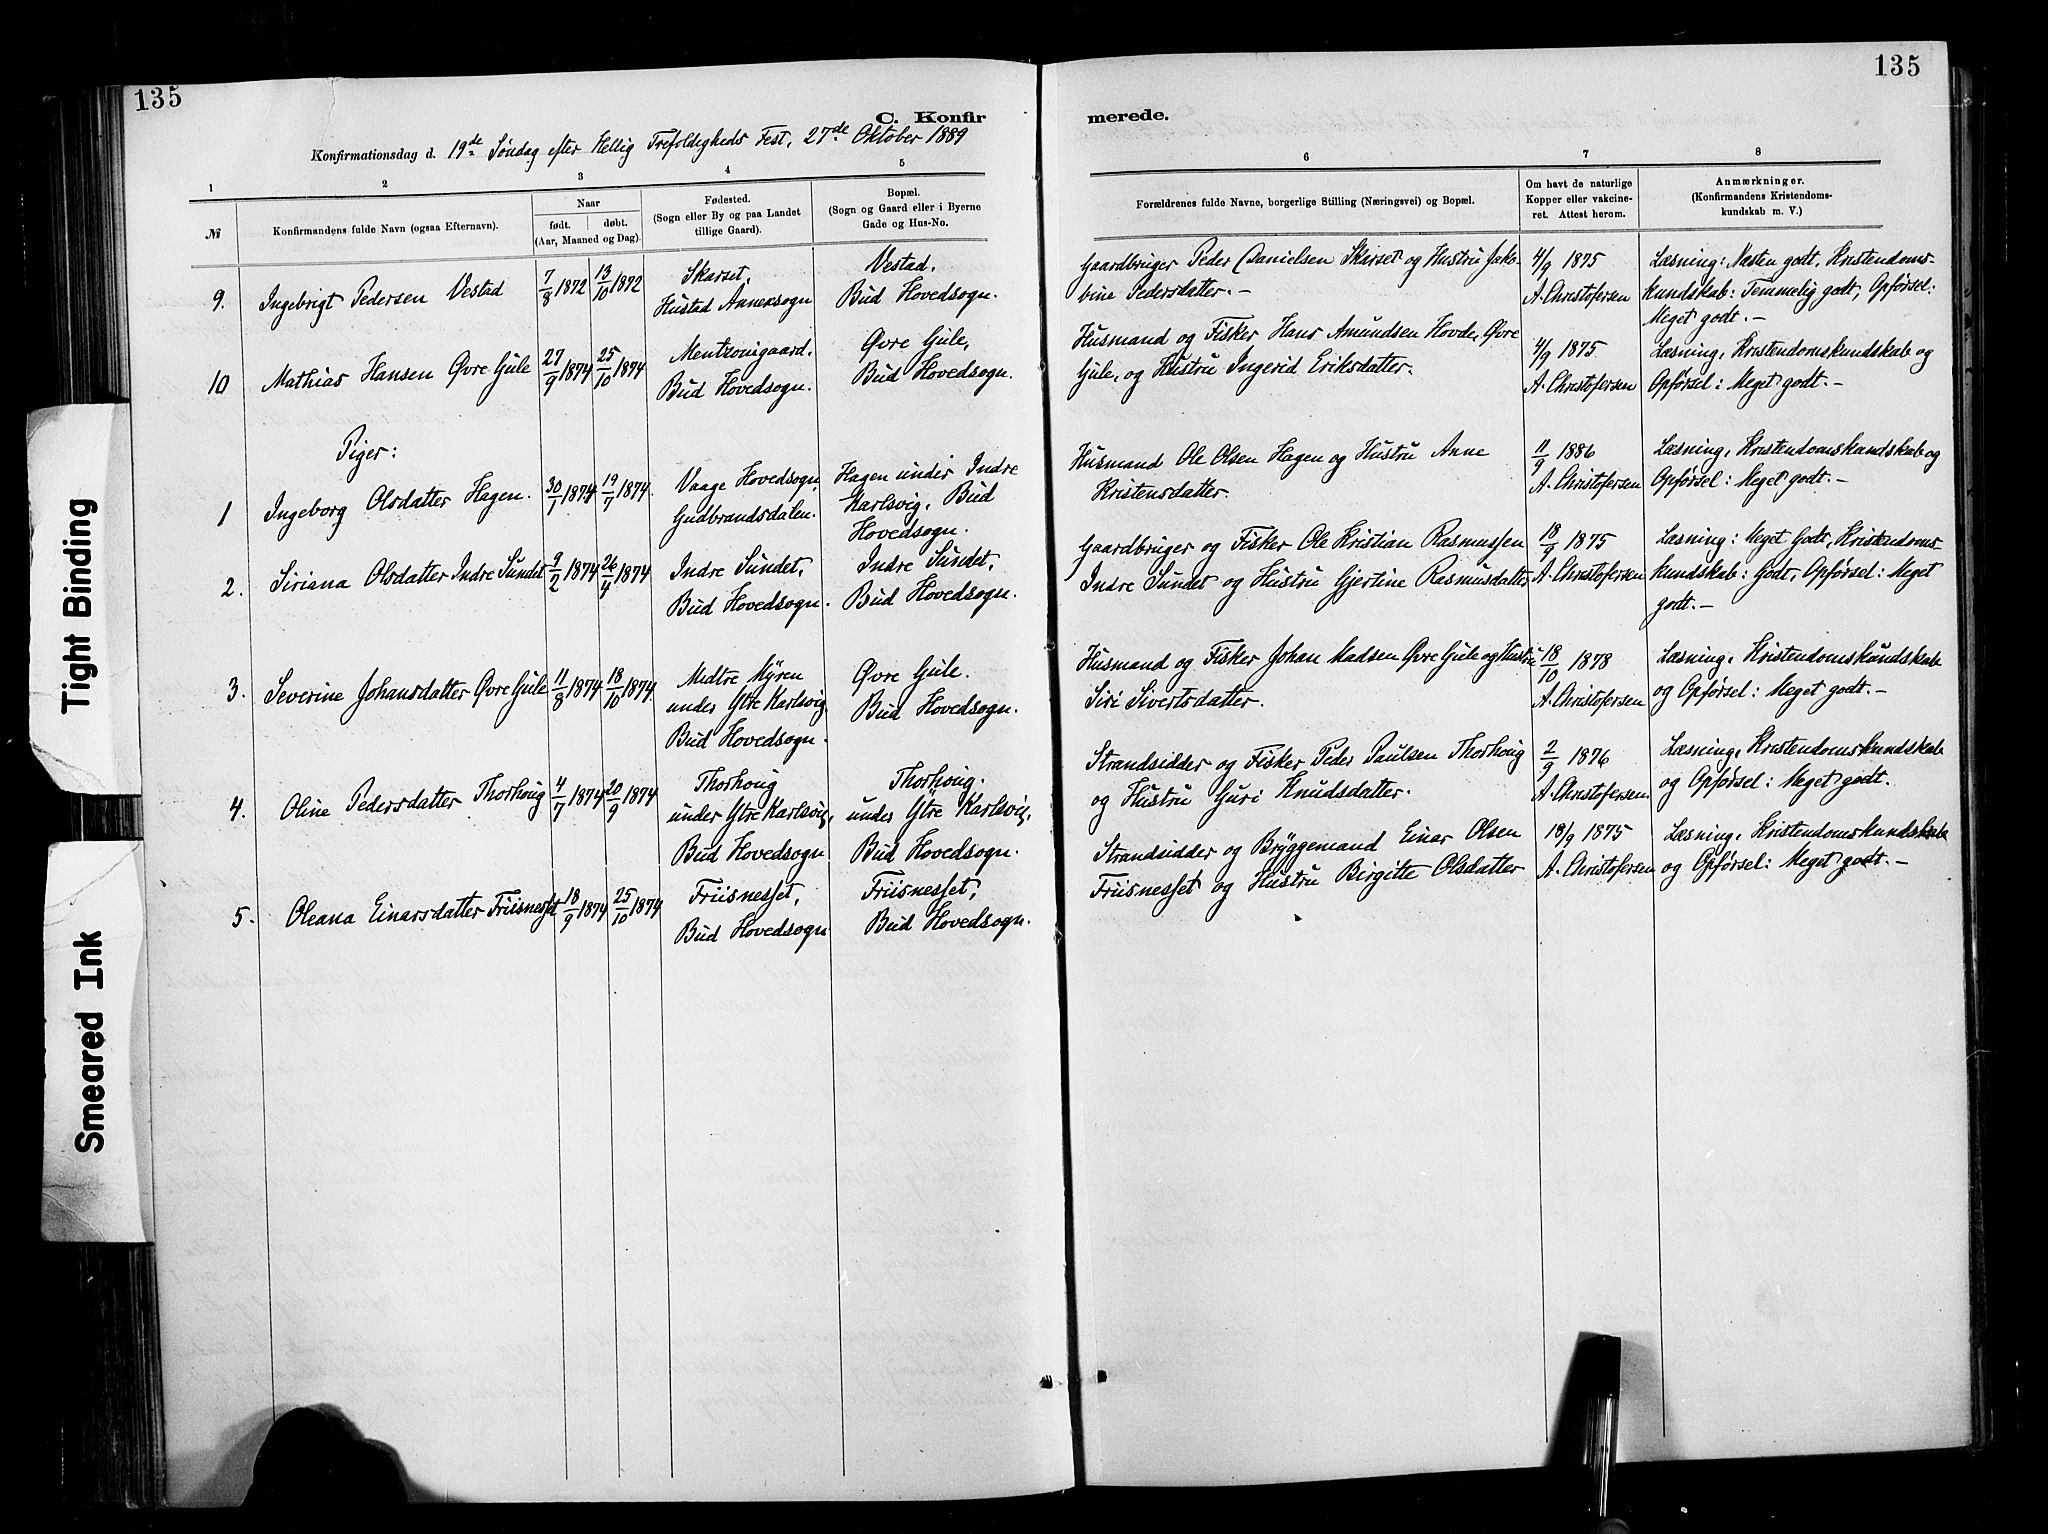 135
135
C. Konfir
merede.
Konfirmationsdag d. 19de Søndag efter Hellig Trefoldigheds Fest, 27de Oktober 1889
1 2 3 4 5 6 7 8
№
Konfirmandens fulde Navn (ogsaa Efternavn).
Naar
født. døbt.
(Aar, Maaned og Dag).
Fødested.
(Sogn eller By og paa Landet
tillige Gaard).
Bopæl.
(Sogn og Gaard eller i Byerne
Gade og Hus-No.
Forældrenes fulde Navne, borgerlige Stilling (Næringsvei) og Bopæl.
Om havt de naturlige
Kopper eller vakcine-
ret. Attest herom.
Anmærkninger.
(Konfirmandens Kristendoms-
kundskab m. V.)
9. Ingebrigt Pedersen Vestad
7/8 1872
13/10 1872
Skarset,
Hustad Annexsogn
Vestad.
Bud Hovedsogn.
Gaardbruger Peder Danielsen Skarset og Hustru Jako-
bine Pedersdatter. -
4/9 1875
A. Christofersen
Læsning: Næsten godt, Kristendoms-
kundskab: Temmelig godt, Opførsel:
Meget godt. -
10 Mathias Hansen Øvre Gule
27/9 1874
25/10 1874
Mentzonigaard.
Bud Hovedsogn.
Øvre Gule,
Bud Hovedsogn.
Husmand og Fisker Hans Amundsen Hovde, Øvre
Gule, og Hustru Ingerid Eriksdatter.
4/9 1875
A. Christofersen
Læsning, Kristendomskundskab og
Opførsel: Meget godt. -
Piger:
1 Ingeborg Olsdatter Hagen.
30/1 1874
19/7 1874.
Vaage Hovedsogn,
Gudbrandsdalen.
Hagen under Indre
Karlsvig, Bud
Hovedsogn.
Husmand Ole Olsen Hagen og Hustru Anne
Kristensdatter.
11/9 1886
A. Christofersen
Læsning, Kristendomskundskab og
Opførsel: Meget godt. -
2. Siriana Olsdatter Indre Sundet
9/2 1874
26/4 1874
Indre Sundet,
Bud Hovedsogn.
Indre Sundet,
Bud Hovedsogn.
Gaardbruger og Fisker Ole Kristian Rasmussen
Indre Sundet og Hustru Gjertine Rasmusdatter
18/9 1875
A. Christofersen
Læsning: Meget Godt, Kristendoms-
kundskab: Godt, Opførsel: Meget
godt. -
3. Severine Johansdatter Øvre Gule
11/8 1874
18/10 1874.
Medtre Myren
under Ytre Karlsvig
Bud Hovedsogn.
Øvre Gule.
Bud Hovedsogn.
Husmand og Fisker Johan Madsen Øvre Gule og Hustru
Siri Sivertsdatter.
18/10 1878
A. Christofersen
Læsning, Kristendomskundskab
og Opførsel: Meget godt. -
4. Oline Pedersdatter Thorhoug
4/7 1874
20/9 1874
Thorhoug
under Ytre Karlsvig,
Bud Hovedsogn
Thorhoug.
under Ytre Karlsvig,
Bud Hovedsogn.
Strandsidder og Fisker Peder Paulsen Thorhoug
og Hustru Guri Knudsdatter.
2/9 1876
A. Christofersen.
Læsning, Kristendomskundskab
og Opførsel: Meget godt.
5. Oleana Einarsdatter Friisnesset
18/9 1874
25/10 1874
Friisnesset,
Bud Hovedsogn
Friisnesset,
Bud Hovedsogn.
Strandsidder og Bryggemand Einar Olsen
Friisnesset og Hustru Birgitte Olsdatter
18/9 1875
A. Christofersen
Læsning, Kristendomskundskab
og Opførsel: Meget godt. -
Tight Binding
Smeared Ink